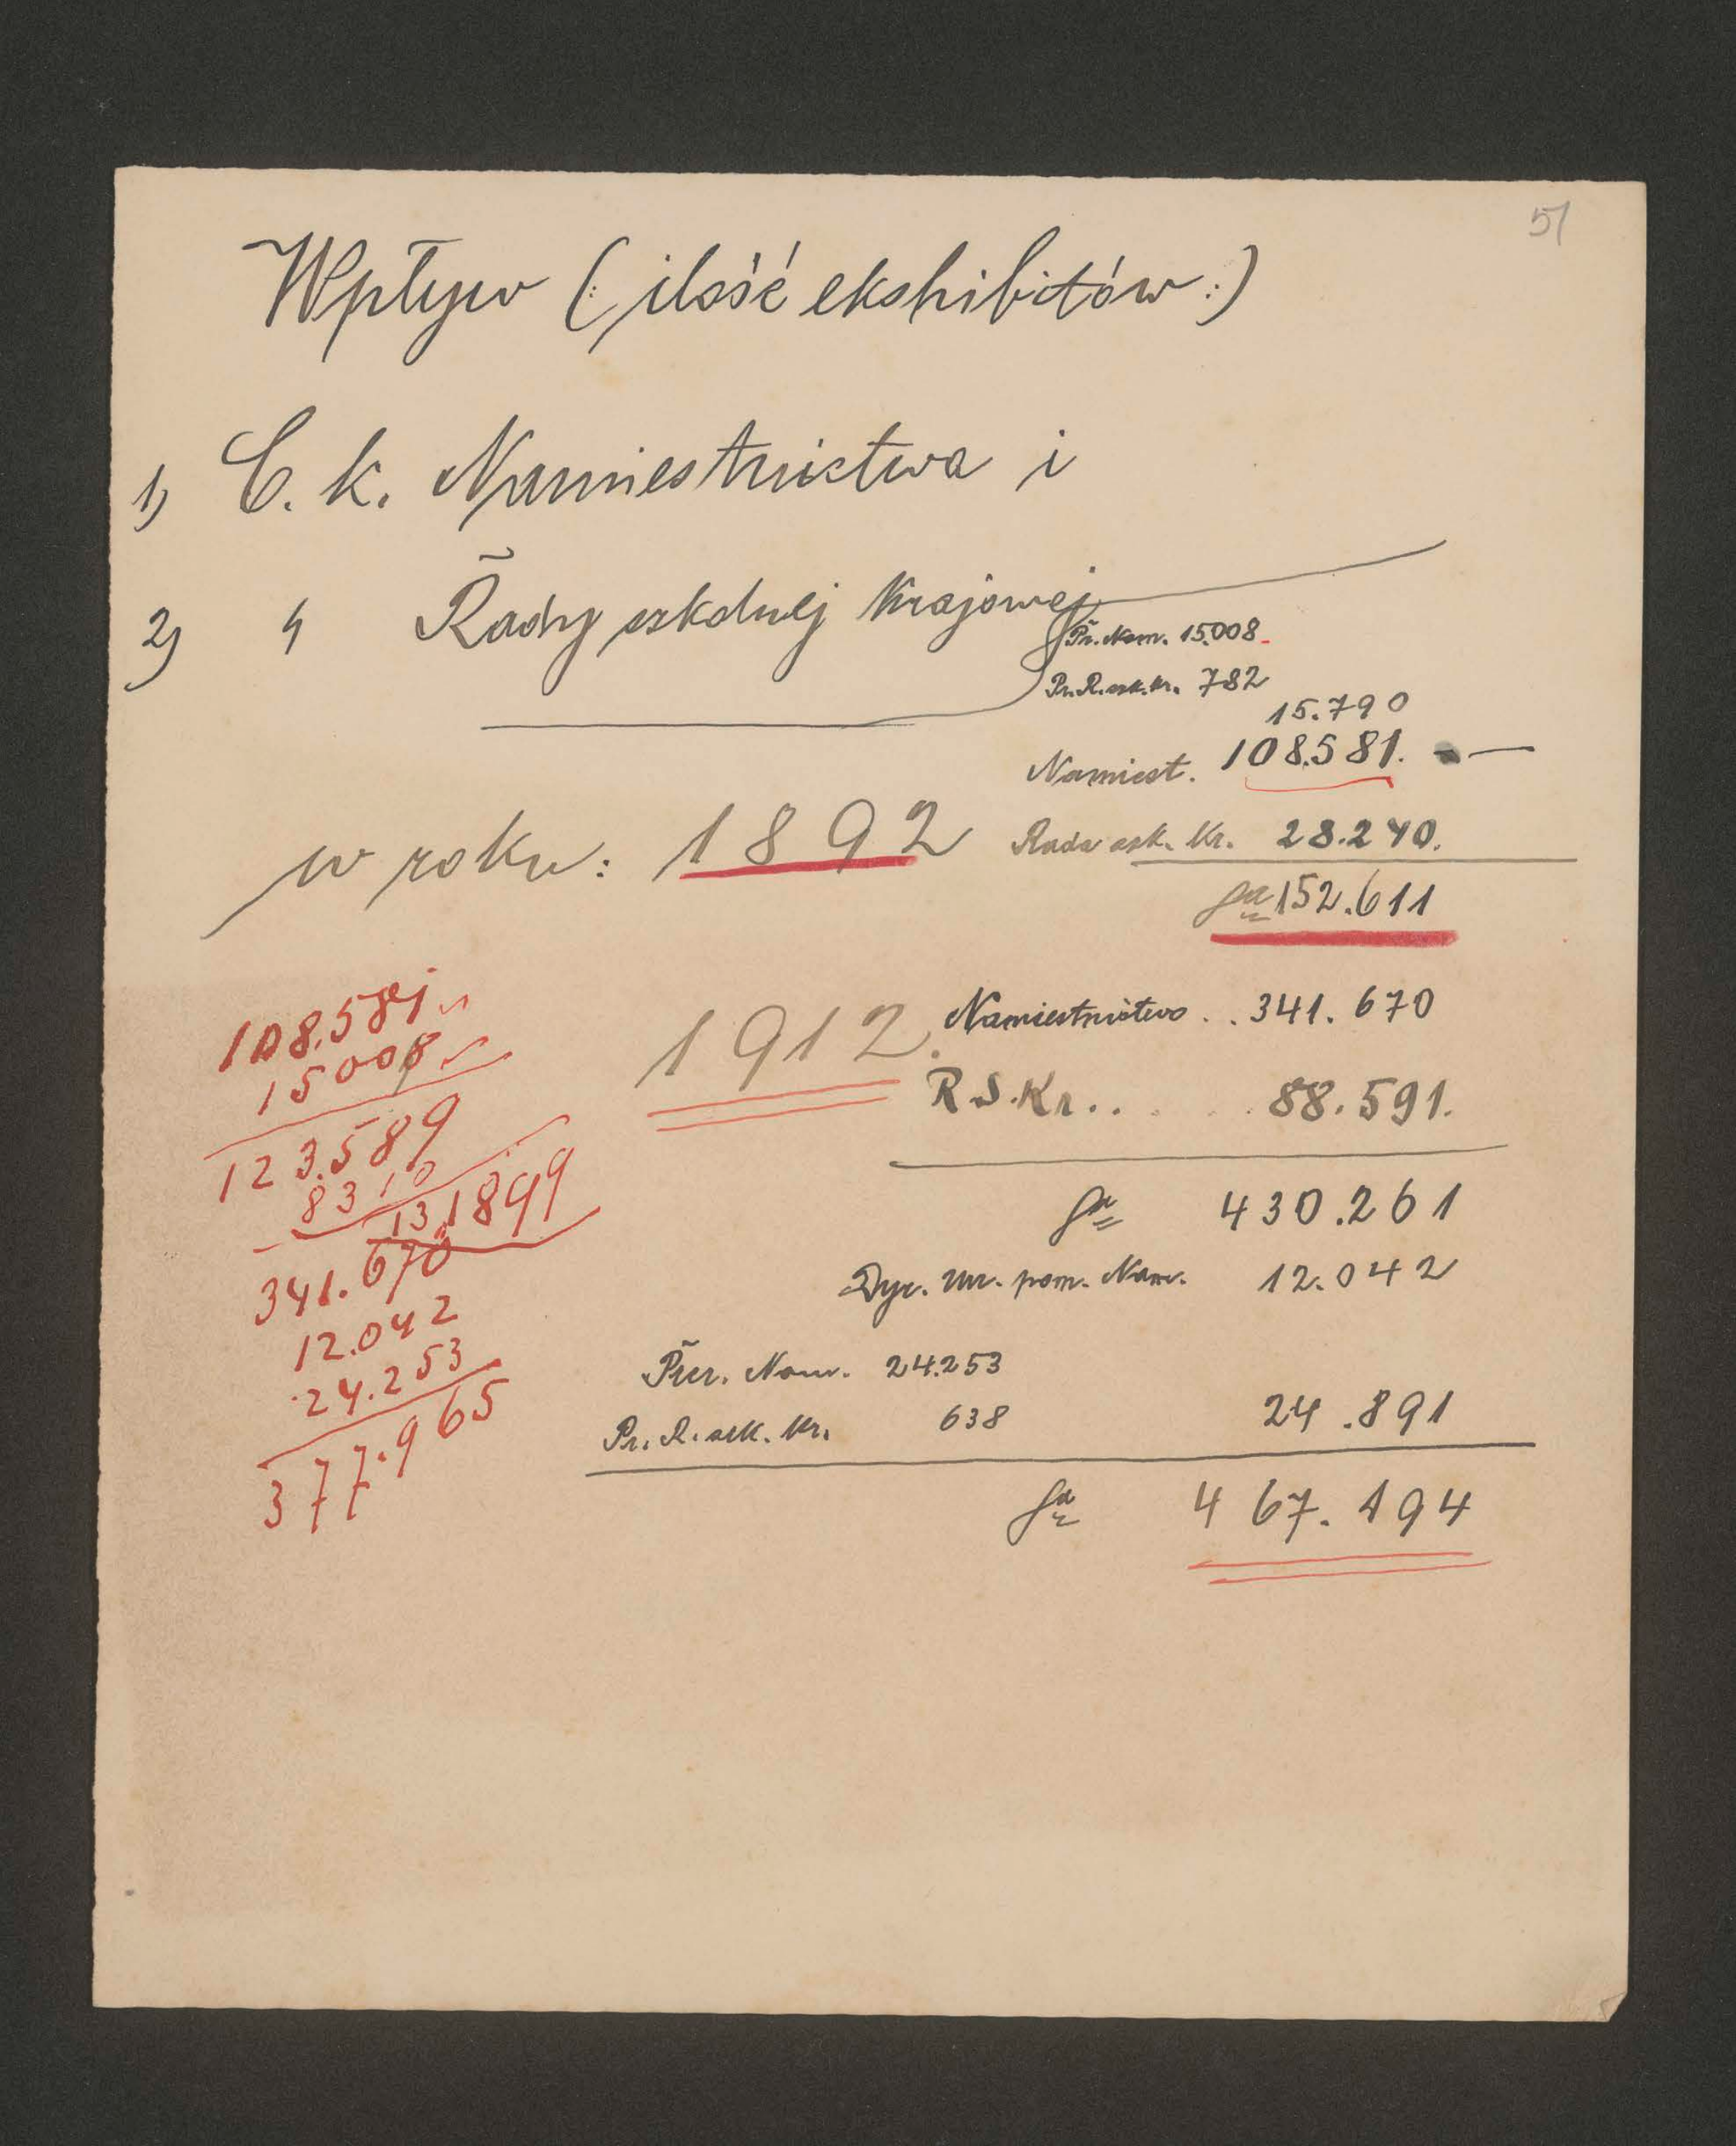 51
Wpływ (: ilość ekshibitów :)
1) C. k. Namiestnictwa i
2) " Rady szkolnej Krajowej
Pr. Nam. 15.008
Pr. R. szk. kr. 782
15.790
Namiest. 108.581. —
w roku: 1892 Rada szk. Kr. 28.240.
sa 152.611
1912. Namiestnictwo . . 341. 670
R. S. Kr . . . . . 88. 591.
sa 430.261
Dyr. Urz. pom. Nam. 12.042
Prez. Nam. 24.253
Pr. R. szk. kr. 638 24.891
sa 467. 194
108.581
15008
123.589
8310
131899
341.670
12.042
24.253
377.965